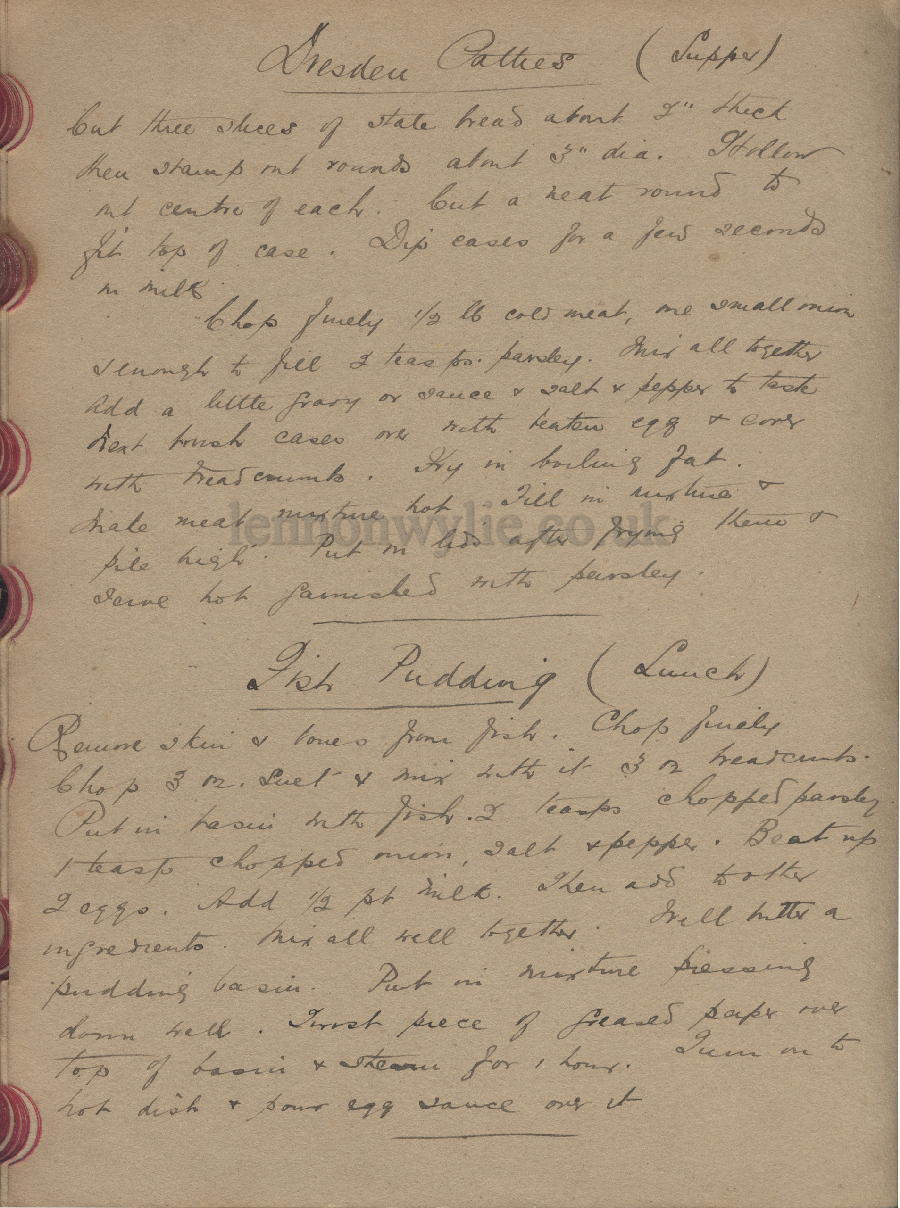 Dresden Patties (Supper)
Cut three slices of stale bread about 2" thick
then stamp out rounds about 3" dia. Hollow
out centre of each. Cut a neat round to
fit top of case. Dip cases for a few seconds
in milk
Chop finely 1/2 lb cold meat, one small onion
& enough to fill 2 teasps. parsley. Mix all together
add a little gravy or sauce & salt & pepper to taste
Next brush cases over with beaten egg & cover
with breadcrumbs. Fry in boiling fat.
Make meat mixture hot. Fill in mixture &
pile high. Put on lids after frying them &
serve hot garnished with parsley.
Fish Pudding (Lunch)
Remove skin & bones from fish. Chop finely
Chop 3 oz. suet & mix with it 3 oz breadcrumbs.
Put in basin with fish. 2 teasps chopped parsley
1 teasp chopped onion, salt & pepper. Beat up
2 eggs. Add 1/2 pt milk. Then add to other
ingredients. Mix all well together. Well butter a
pudding basin. Put in mixture pressing
down well. Twist piece of greased paper over
top of basin & steam for 1 hour. Turn on to
hot dish & pour egg sauce over it
lennonwylie.co.uk